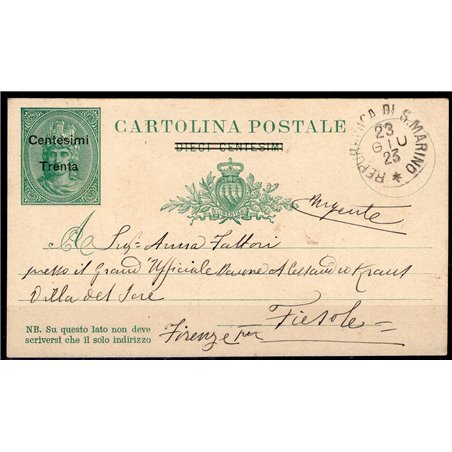 Centesimi
Trenta
CARTOLINA POSTALE
DIECI CENTESIMI
REPUBBLICA DI S. MARINO
23
GIU
23
Urgente
A Sigª Anna Fattori
presso il Grand' Ufficiale Barone Alessandro Kraus
Villa del
Firenze per Fiesole
NB. Su questo lato non deve
scriversi che il solo indirizzo